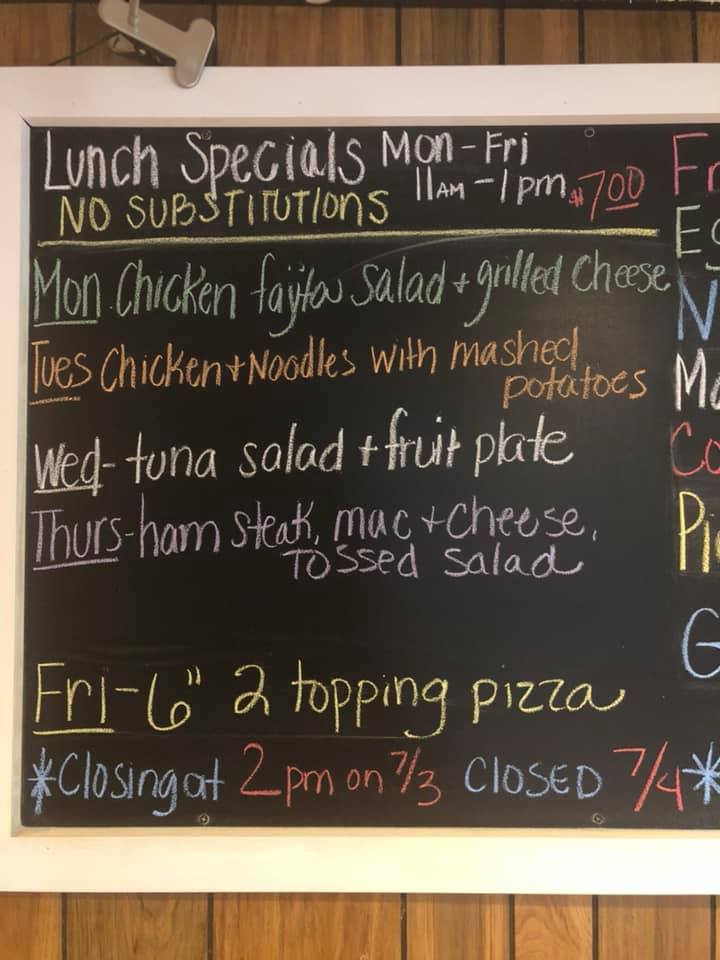 Lunch Specials Mon-Fri
11AM-1pm $7.00
NO SUBSTITUTIONS
Mon Chicken fajita Salad + grilled Cheese
Tues Chicken + Noodles with mashed
potatoes
Wed- tuna salad + fruit plate
Thurs-ham steak, mac + cheese,
Tossed salad
Fri-6" 2 topping pizza
*Closing at 2pm on 7/3 CLOSED 7/4*
Fr
Es
N
Ma
Co
Pi
G